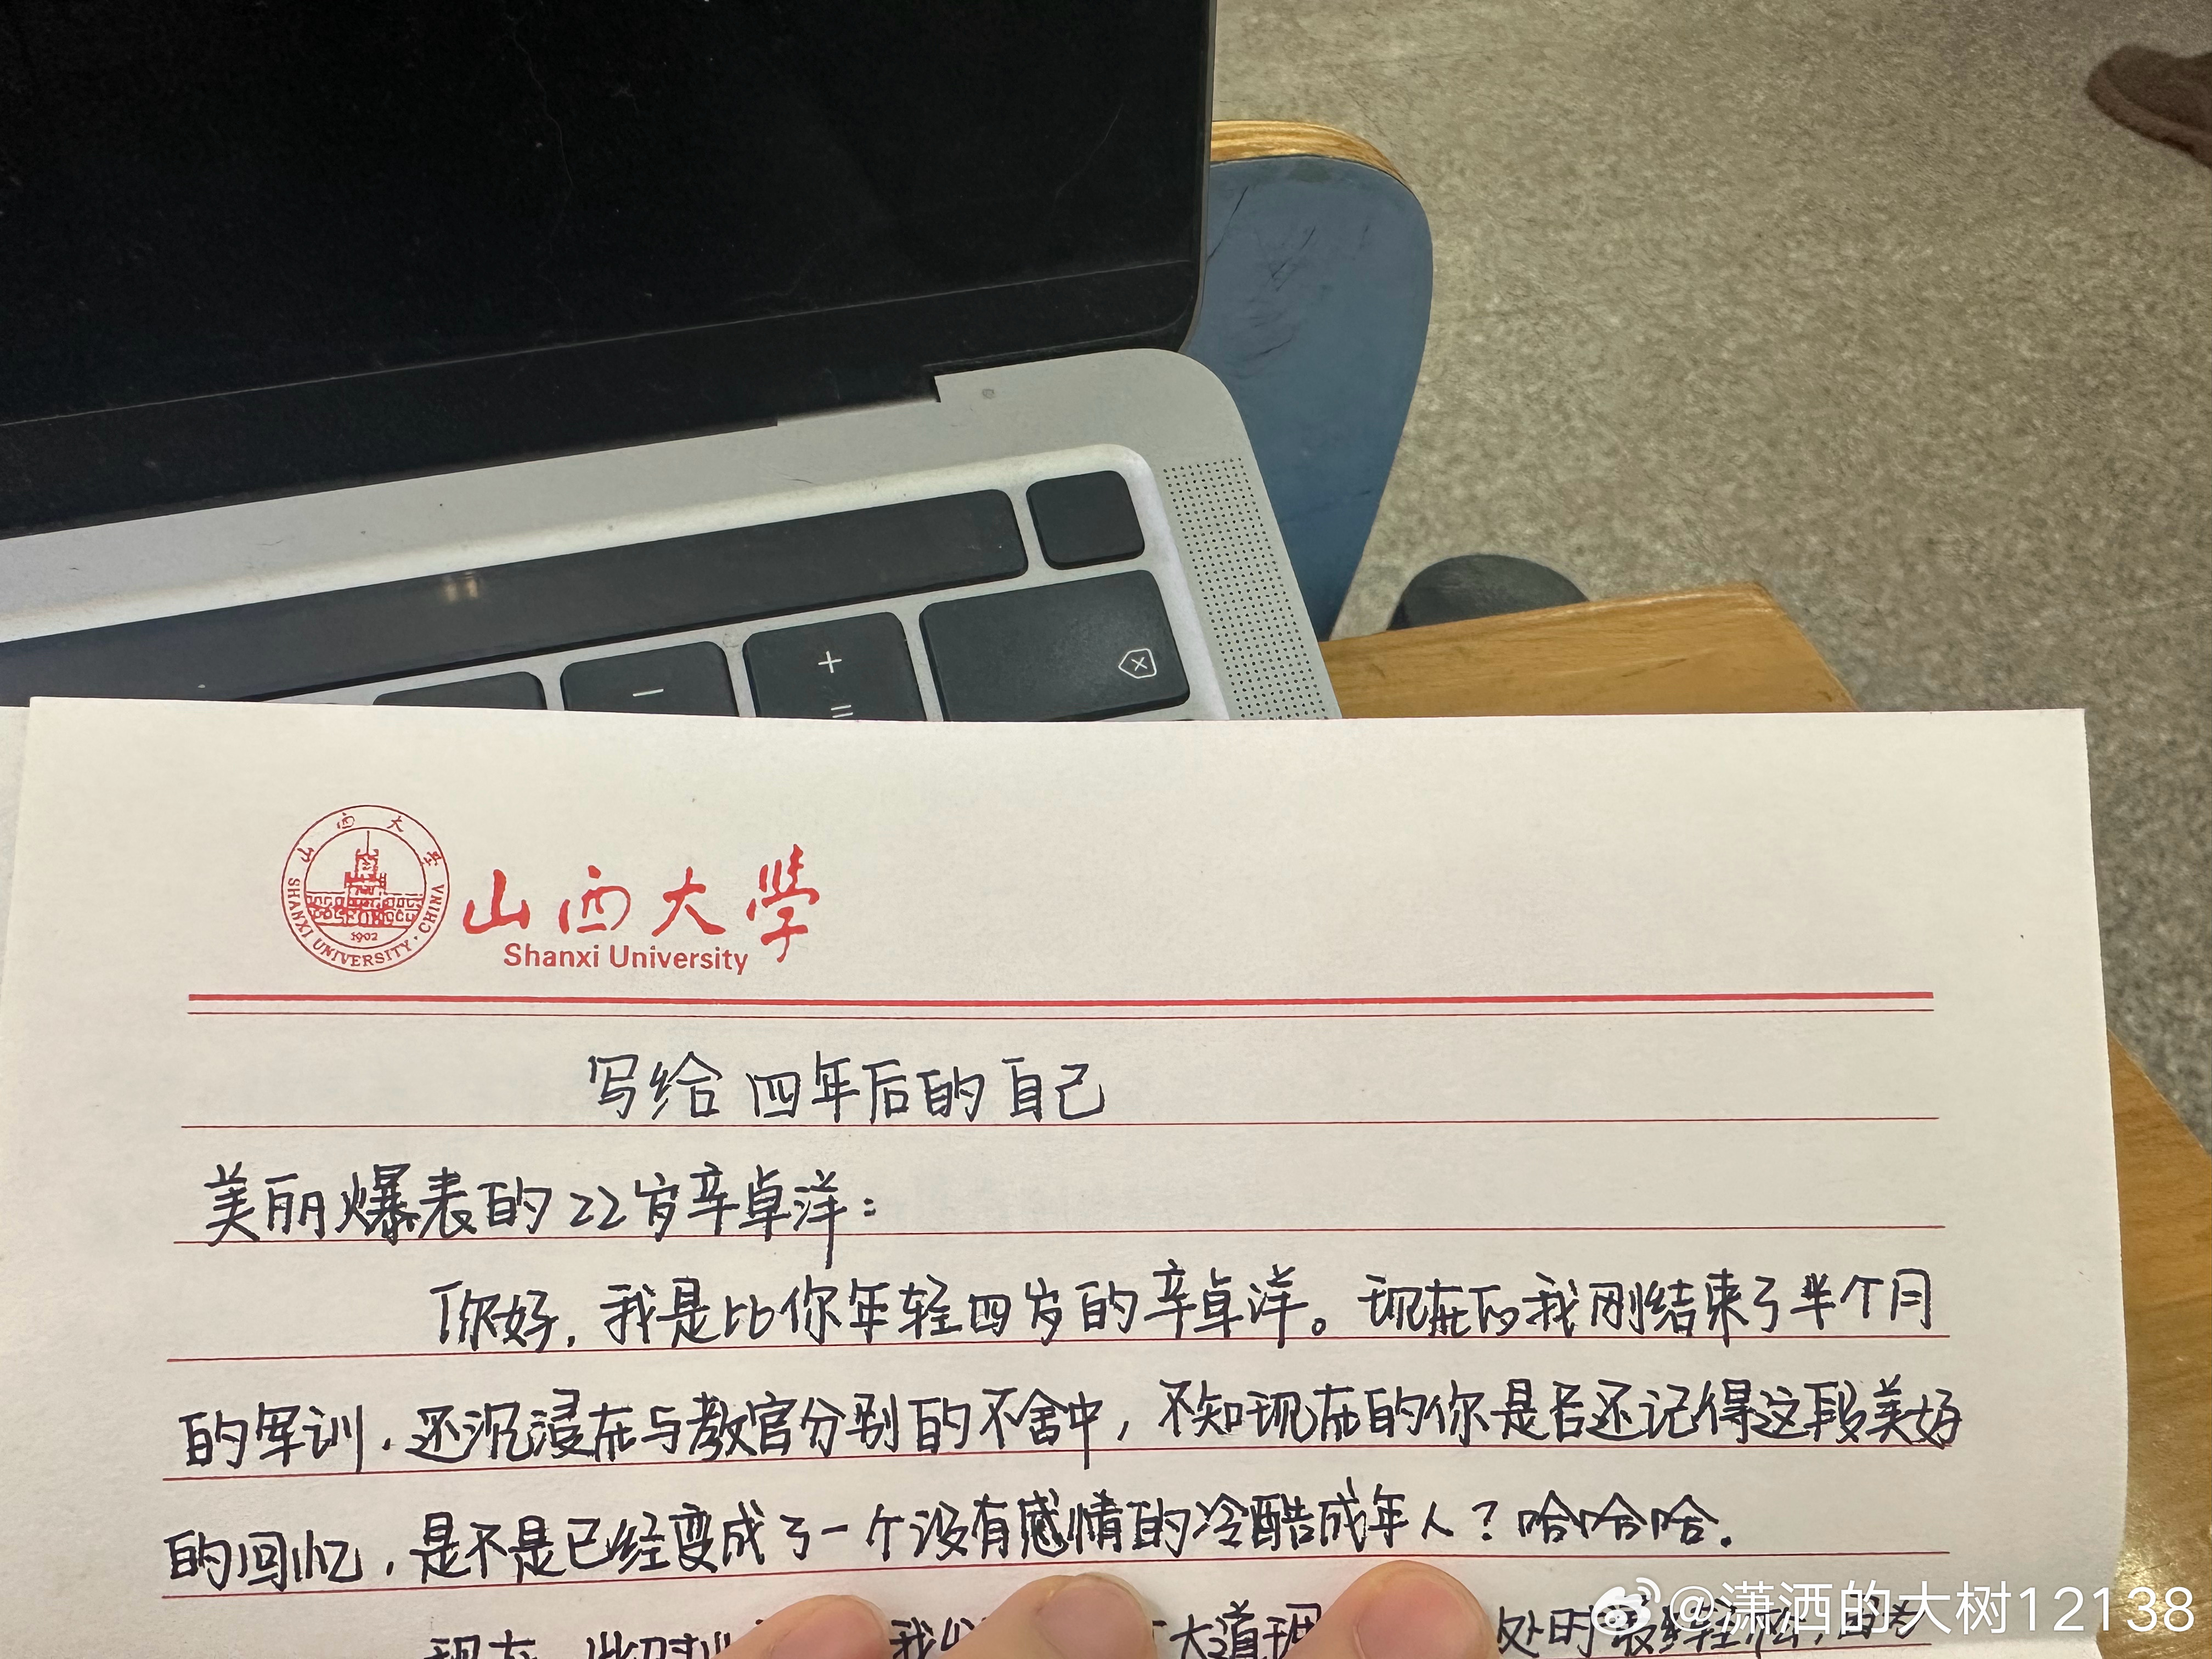 +
=
—
山西大学
SHANXI UNIVERSITY · CHINA
1902
山西大學
Shanxi University
写给四年后的自己
美丽爆表的22岁辛卓洋：
你好，我是比你年轻四岁的辛卓洋。现在的我刚结束了半个月
的军训，还沉浸在与教官分别的不舍中，不知现在的你是否还记得这段美好
的回忆，是不是已经变成了一个没有感情的冷酷成年人？哈哈哈.
现在 此时 我 大道 处时最轻松，因为
@潇洒的大树12138